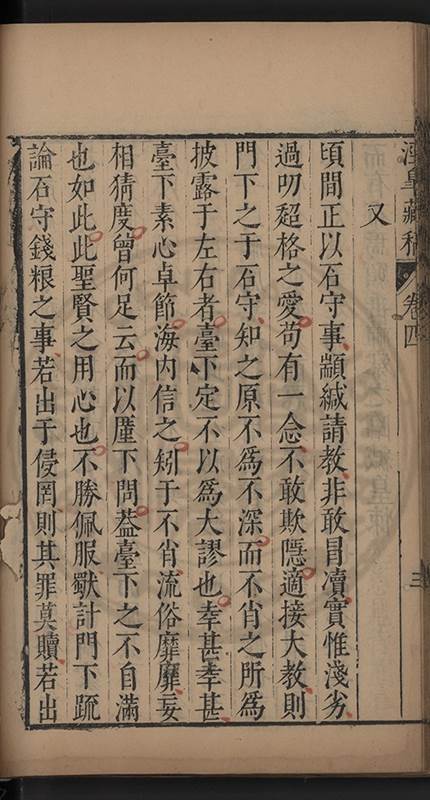 涇皋藏稿 卷四 三
又
頃間正以石守事顓緘請教非敢冒瀆實惟淺劣
過叨超格之愛苟有一念不敢欺隱適接大教則
門下之于石守知之原不為不深而不肖之所為
披露于左右者臺下定不以為大謬也幸甚幸甚
臺下素心卓節海內信之矧于不肖流俗靡靡妄
相猜度曾何足云而以廑下問葢臺下之不自滿
也如此此聖賢之用心也不勝佩服獣計門下䟽
論石守錢粮之事若出于侵罔則其罪莫贖若出